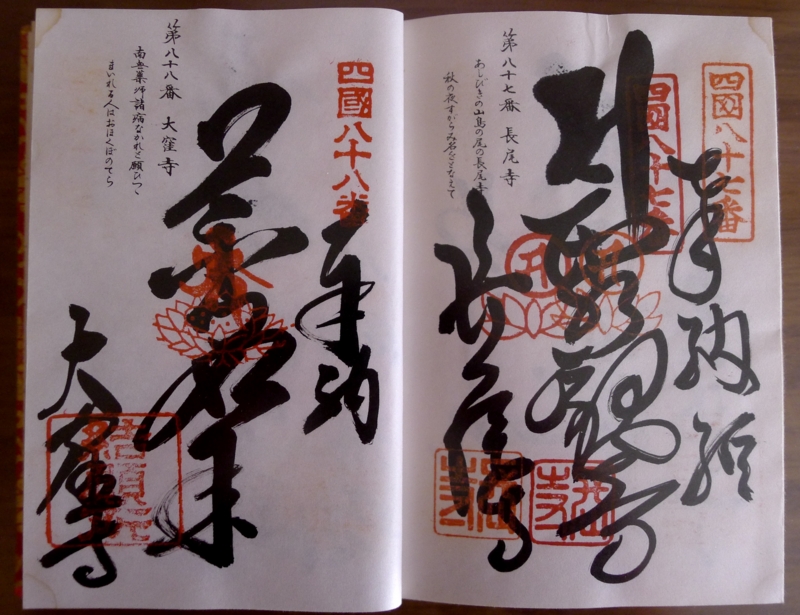 四国八十七番
奉納経
四国八十七番
長尾寺
第八十七番 長尾寺
あしびきの山鳥の尾の長尾寺
秋の夜すがらみ名をとなえて
四國八十八番
奉納
薬師如来
大窪寺
結願所
第八十八番 大窪寺
南無薬師諸病なかれと願ひつゝ
まいれる人はおほくぼのてら